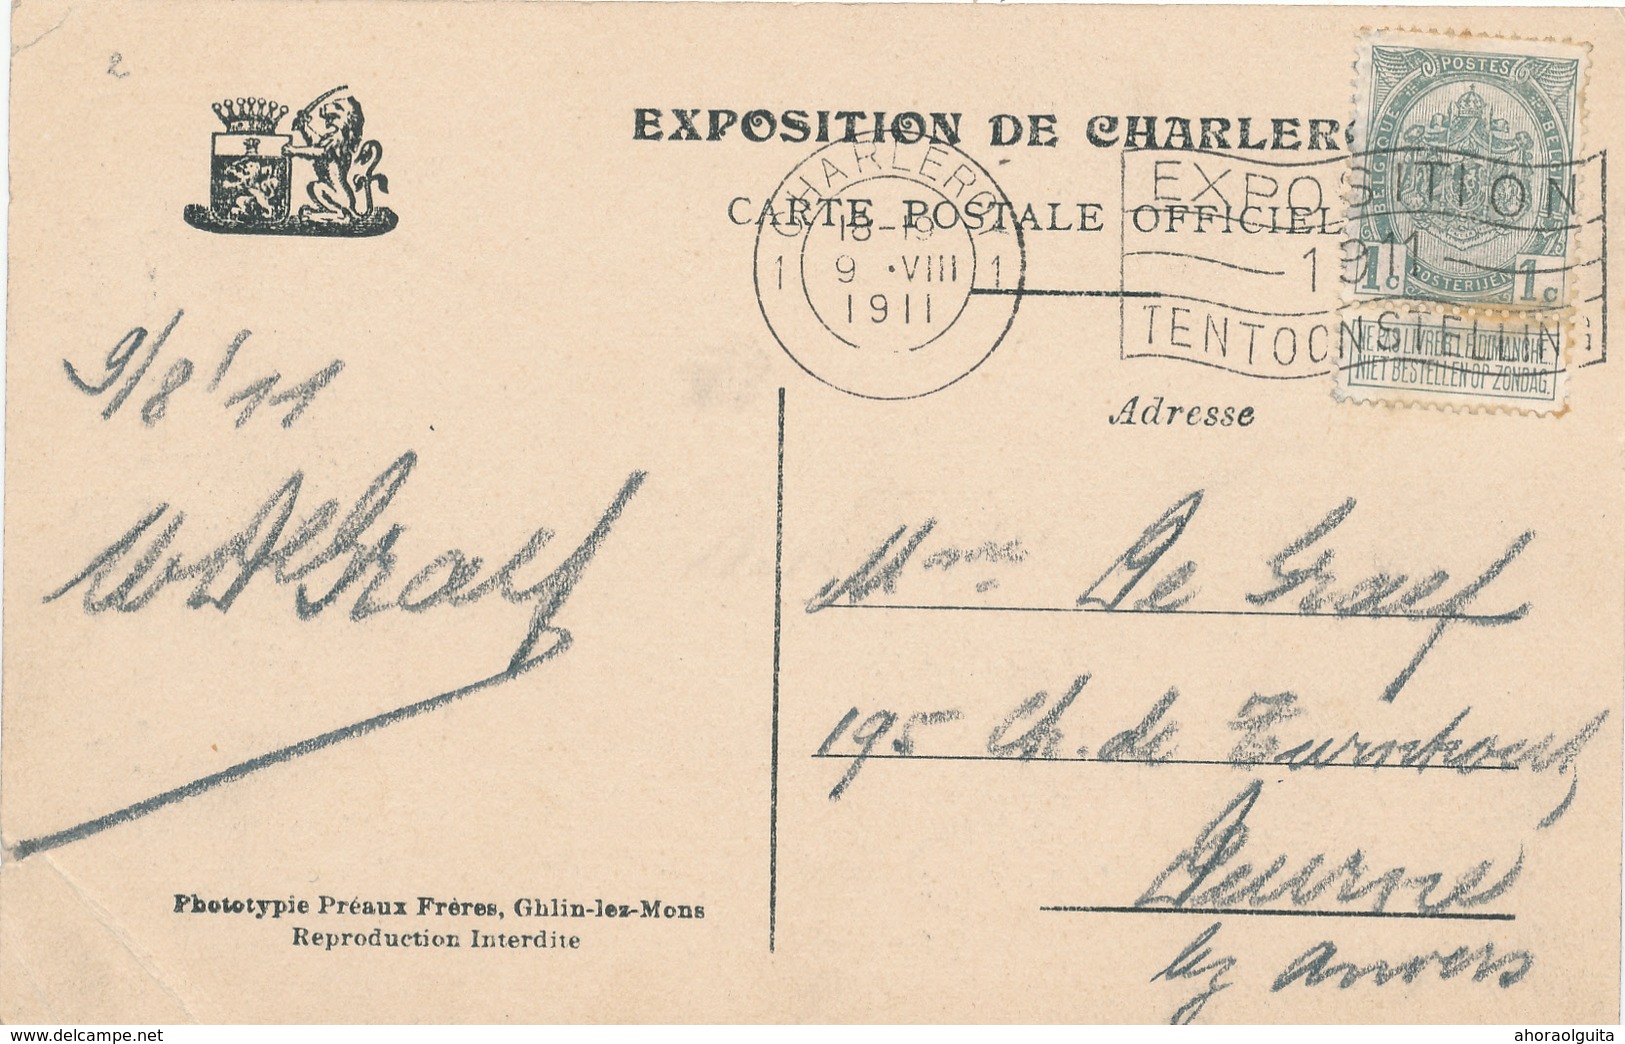 2
EXPOSITION DE CHARLERO
CARTE POSTALE OFFICIEL
CHARLEROI
1 18-19 1
9 ·VIII
1911
EXPOSITION
1911
TENTOONSTELLING
POSTES
BELGIQUE
BELGIË
POSTERIJEN
1c 1c
NE PAS LIVRER LE DIMANCHE.
NIET BESTELLEN OP ZONDAG.
9/8'11
DeGraef
Adresse
Mme De Graef
195 Ch. de Turnhout
Deurne
lez Anvers
Phototypie Préaux Frères, Ghlin-lez-Mons
Reproduction Interdite
ahoraolguita